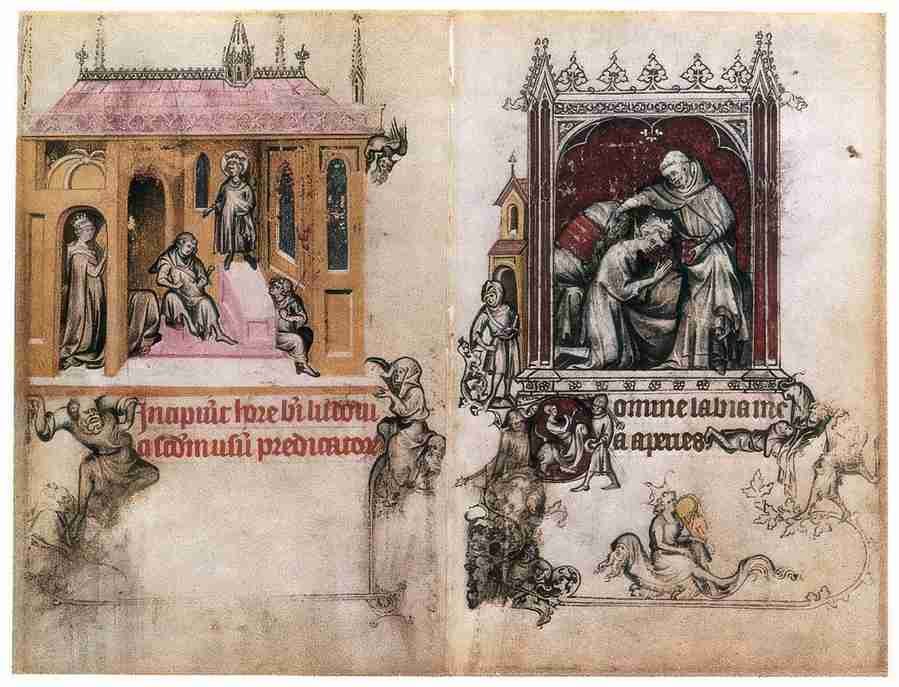 Incipiūt hore bī ludoui
ci scdm usū predicator
Domine labia me
a aperies